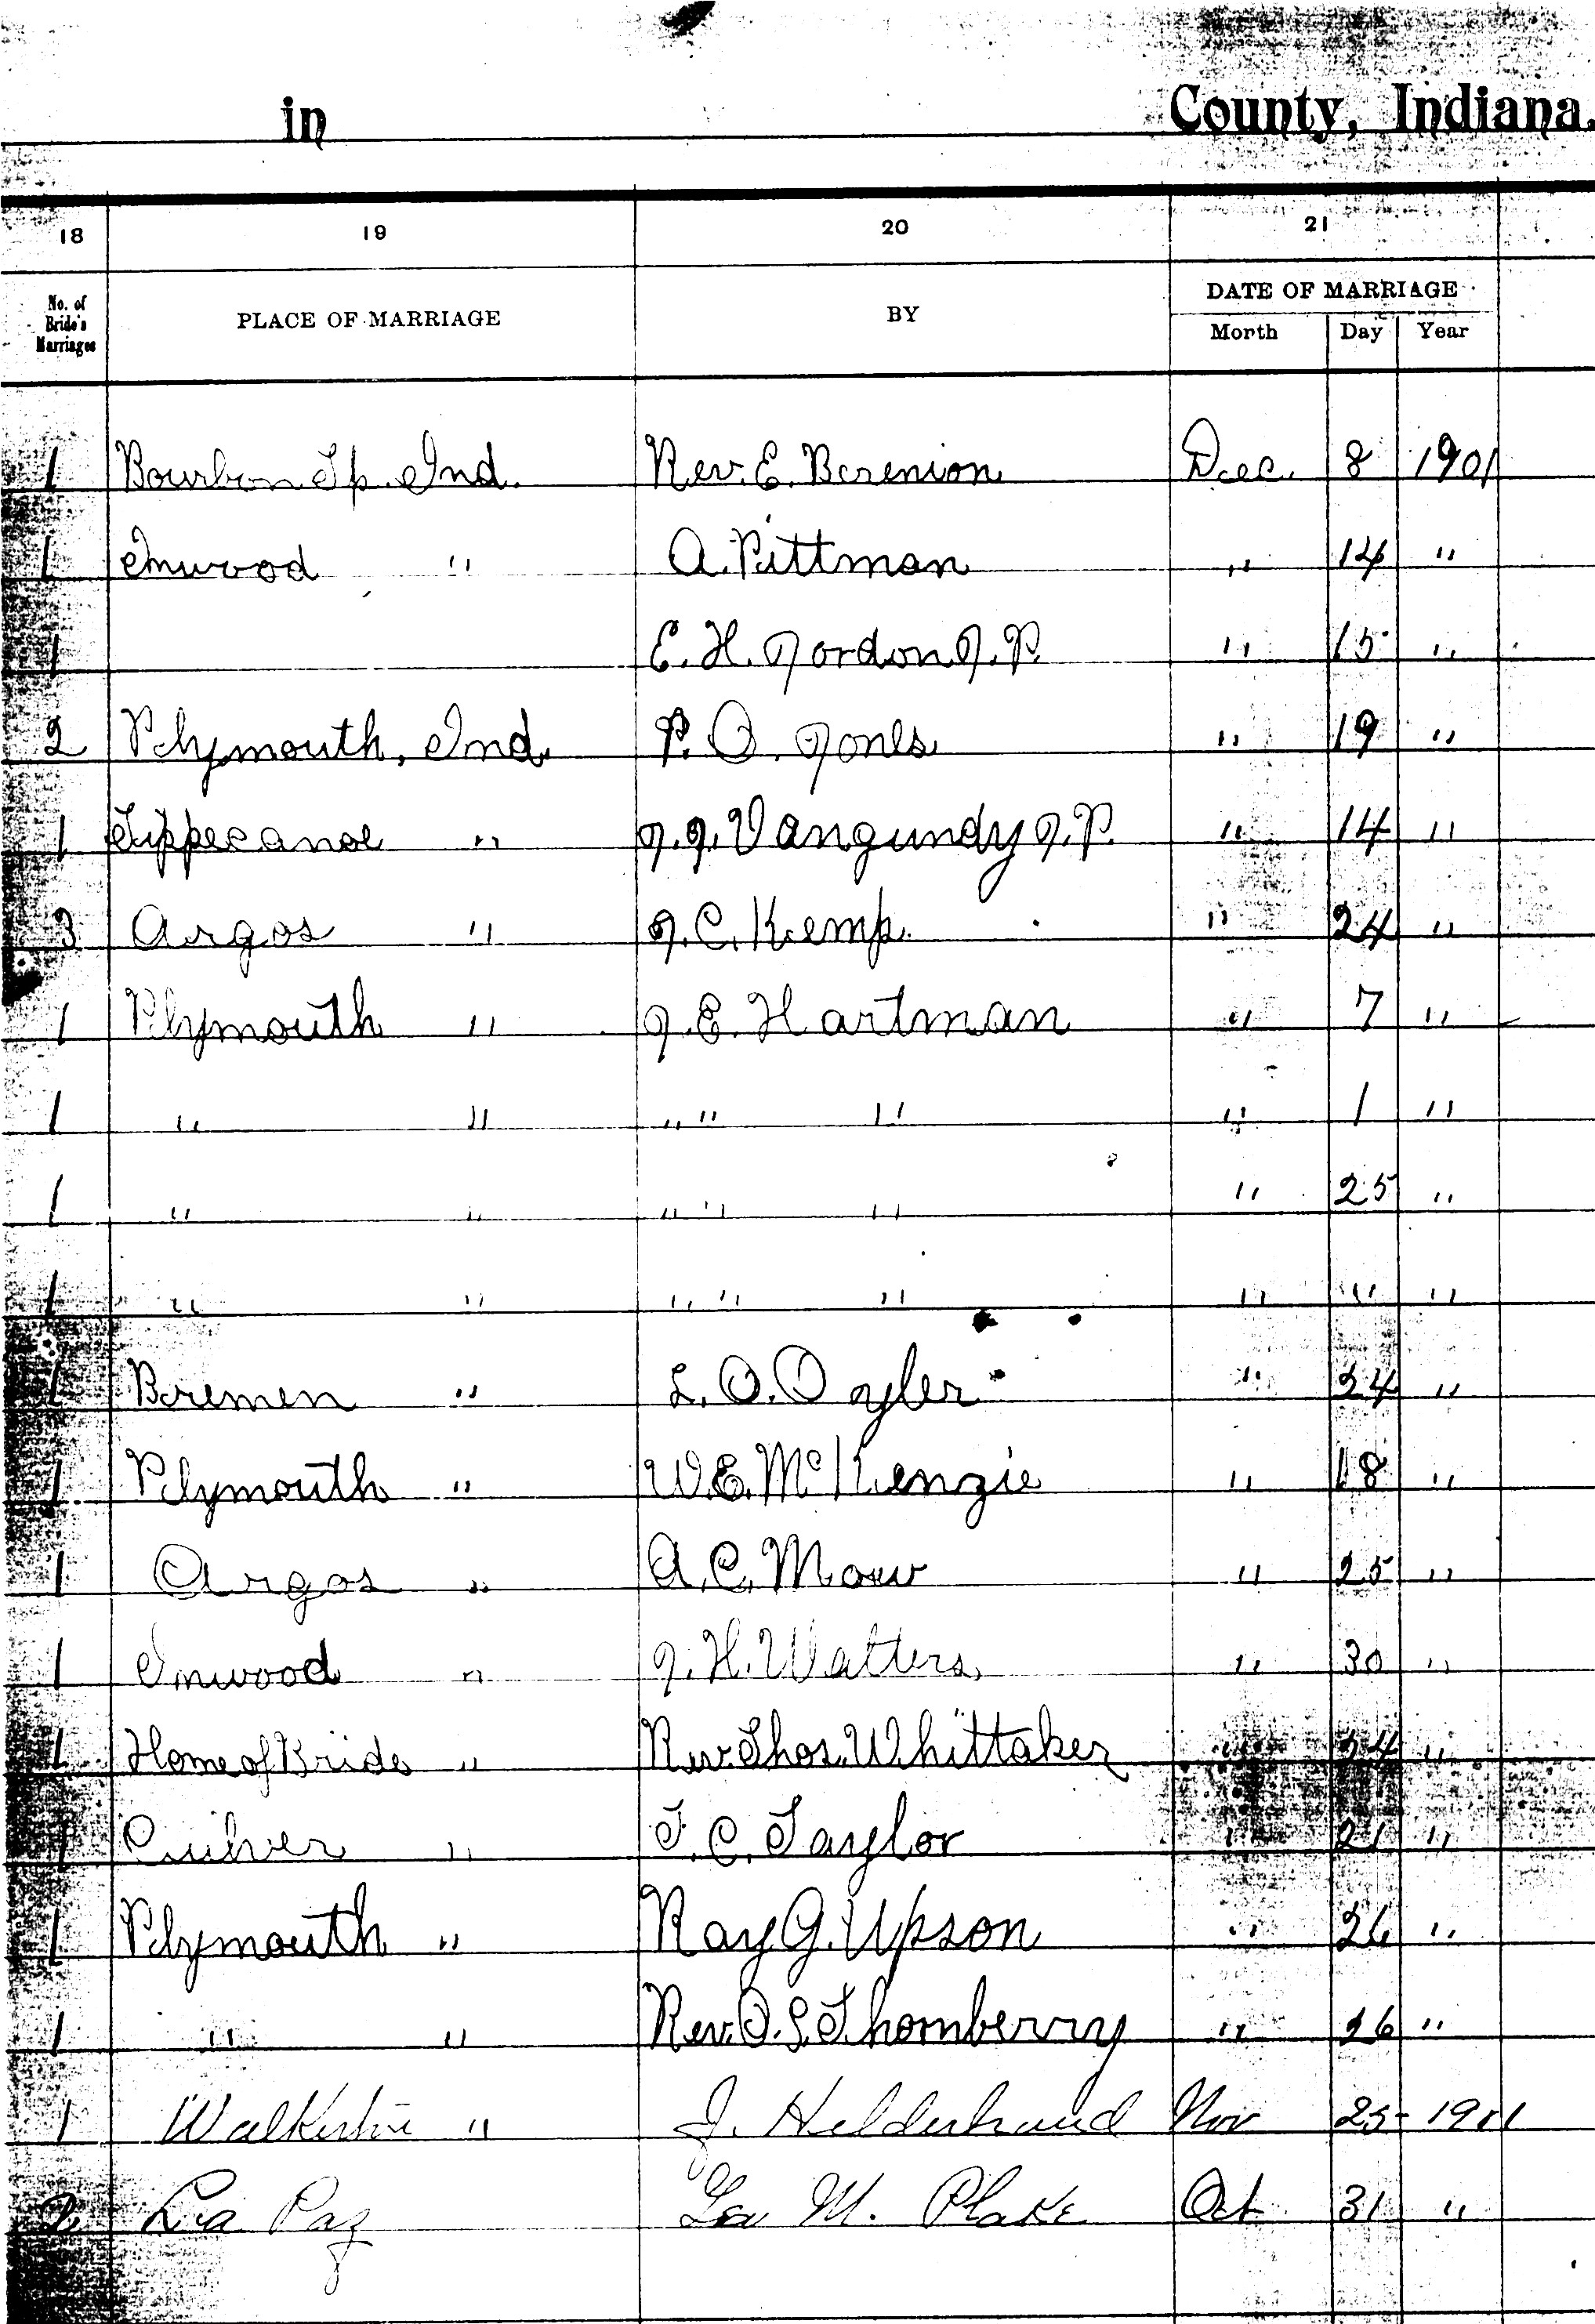 in County, Indiana.
18 19 20 21
No. of Bride's Marriages PLACE OF MARRIAGE BY DATE OF MARRIAGE
Month Day Year
1 Bourbon Tp. Ind. Rev. E. Berenion Dec. 8 1901
1 Inwood " A. Pittman " 14 "
1 E. H. Jordon J. P. " 15 "
2 Plymouth, Ind. P. O. Jones " 19 "
1 Tippecanoe " J. J. Vangundy J. P. " 14 "
3 Argos " J. C. Kemp. " 24 "
1 Plymouth " J. E. Hartman " 7 "
1 " " " " " " 1 "
1 " " " " " " 25 "
1 " " " " " " " "
1 Bremen " L. O. Oyler " 24 "
1 Plymouth " W. E. McKenzie " 18 "
1 Argos " A. C. Mow " 25 "
1 Inwood " J. H. Walters " 30 "
1 Home of Bride " Rev. Thos. Whittaker " 24 "
1 Culver " F. C. Taylor " 21 "
1 Plymouth " Ray G. Upson " 26 "
1 " " Rev. O. S. Thornberry " 26 "
1 " J. Nov 25 1901
2 La Paz M. Plake Oct 31 "